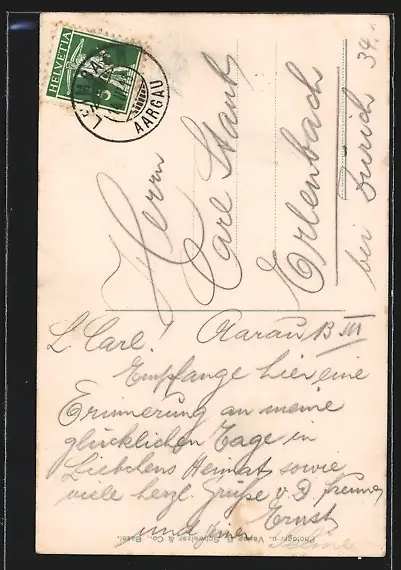 HELVETIA
AARGAU
Herrn
Carl Staub
Erlenbach
bei Zürich
L. Carl! Aarau 13 III
Empfange hier eine
Erinnerung an meine
glücklichen Tage in
Liebchens Heimat, sowie
viele herzl. Grüße v. D.
und Ernst
Photogr. u. Verlag Schweizer & Co., Basel.